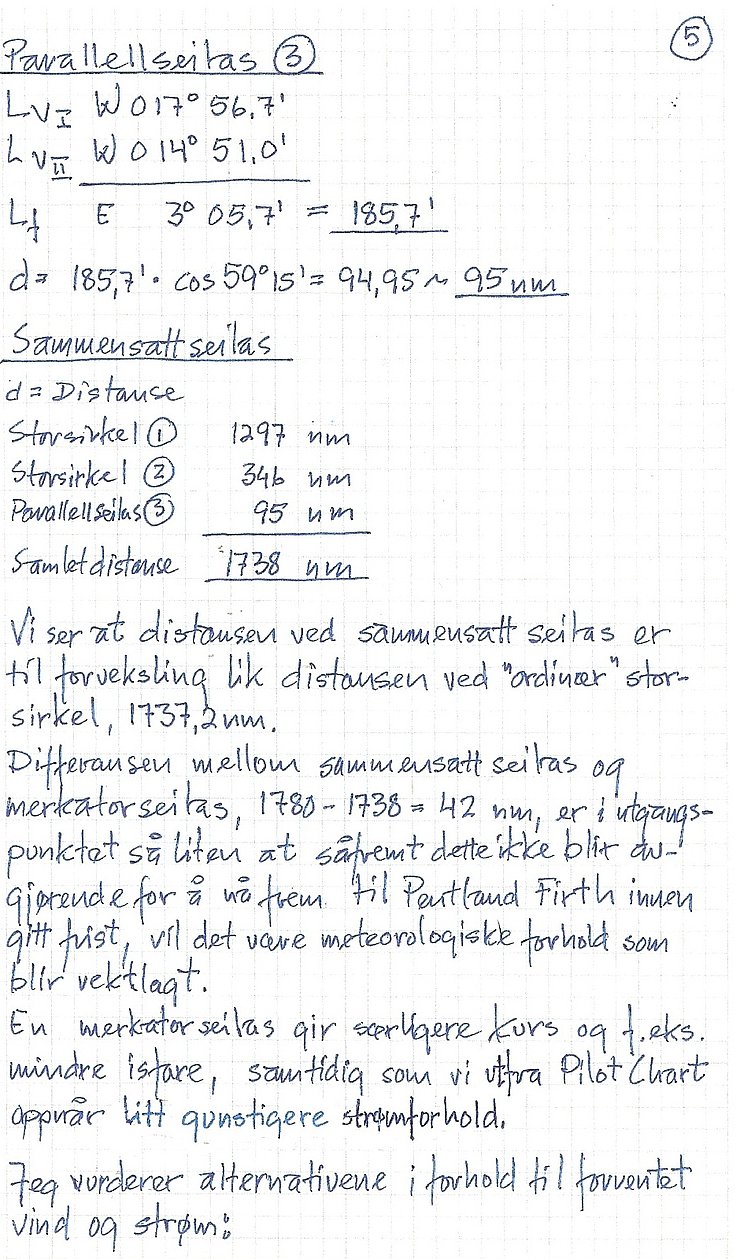 5
Parallellseilas 3
Lv I W 017° 56,7'
Lv II W 014° 51,0'
Lf E 3° 05,7' = 185,7'
d = 185,7' · cos 59°15' = 94,95 ~ 95 nm
Sammensatt seilas
d = Distanse
Storsirkel 1 1297 nm
Storsirkel 2 346 nm
Parallellseilas 3 95 nm
Samlet distanse 1738 nm
Vi ser at distansen ved sammensatt seilas er
til forveksling lik distansen ved "ordinær" stor-
sirkel, 1737,2 nm.
Differansen mellom sammensatt seilas og
merkatorseilas, 1780 - 1738 = 42 nm, er i utgangs-
punktet så liten at såfremt dette ikke blir av-
gjørende for å nå frem til Pentland Firth innen
gitt frist, vil det være meteorologiske forhold som
blir vektlagt.
En merkatorseilas gir sørligere kurs og f.eks.
mindre isfare, samtidig som vi utfra Pilot Chart
oppnår litt gunstigere strømforhold.
Jeg vurderer alternativene i forhold til forventet
vind og strøm: